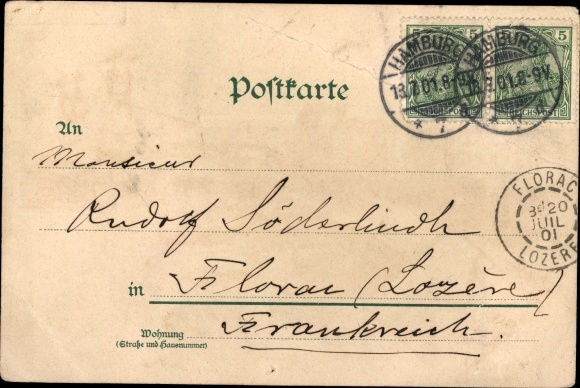 5 5
HAMBURG HAMBURG
13.7.01.8-9V. 13.7.01.8-9V.
* 7 d * 7 d
REICHSPOST
Postkarte
An
Monsieur
Rudolf Söderlindh
FLORAC
20
JUIL
01
LOZERE
in Florac (Lozère)
Frankreich.
Wohnung
(Straße und Hausnummer)